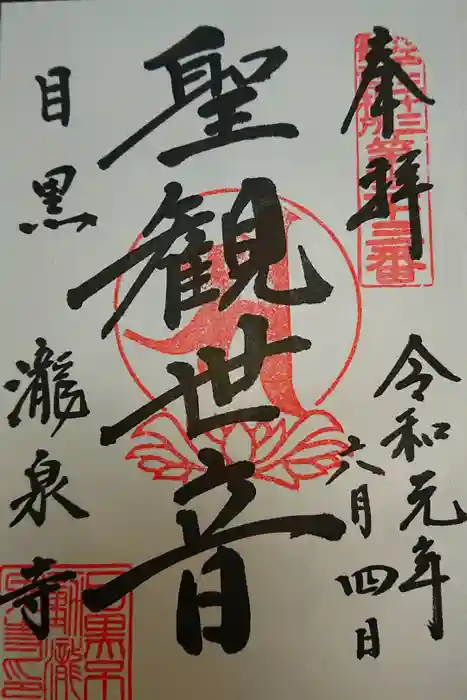 奉拝
令和元年
六月四日
聖観世音
目黒
瀧泉寺